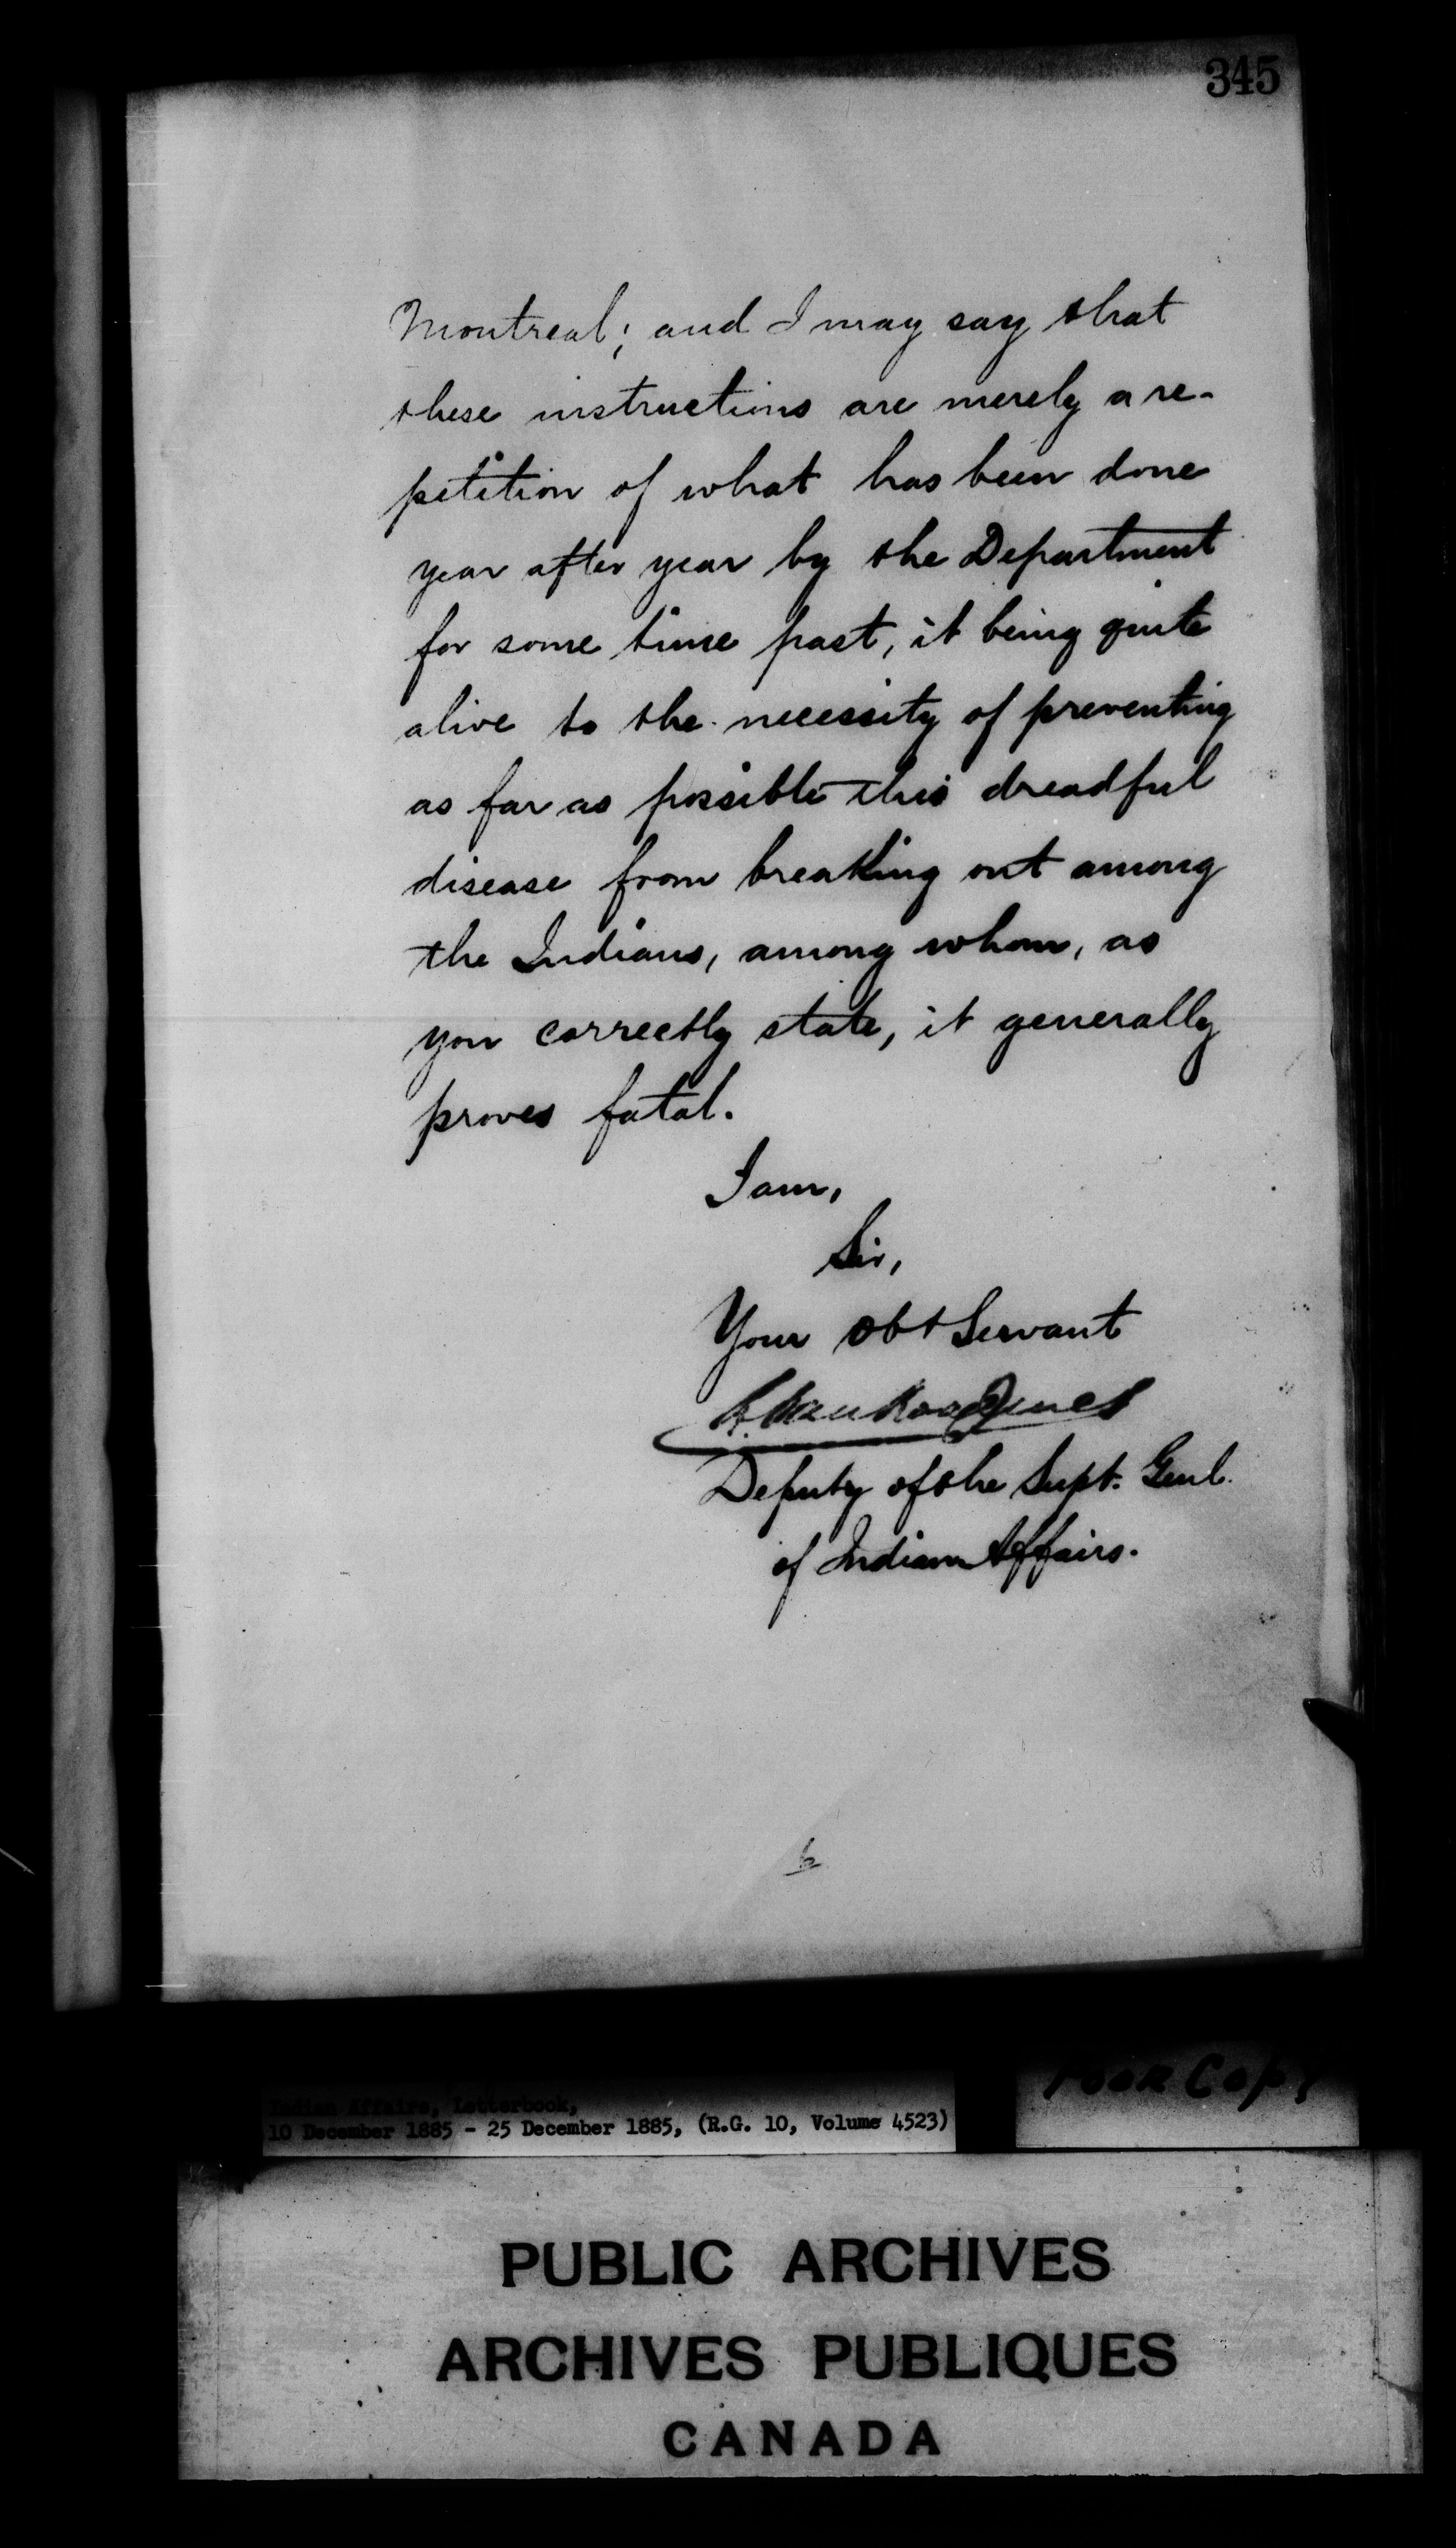 345
Montreal; and I may say that
these instructions are merely a re-
petition of what has been done
year after year by the Department
for some time past, it being quite
alive to the necessity of preventing
as far as possible this dreadful
disease from breaking out among
the Indians, among whom, as
you correctly state, it generally
proves fatal.
I am,
Sir,
Your Obt Servant
L. Vankoughnet
Deputy of the Supt. Genl.
of Indian Affairs.
Indian Affairs, Letterbook,
10 December 1885 - 25 December 1885, (R.G. 10, Volume 4523)
Poor Copy
PUBLIC ARCHIVES
ARCHIVES PUBLIQUES
CANADA